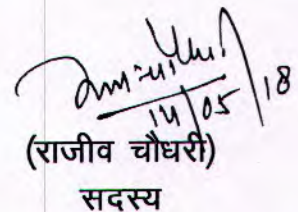 14/05/18
(राजीव चौधरी)
सदस्य